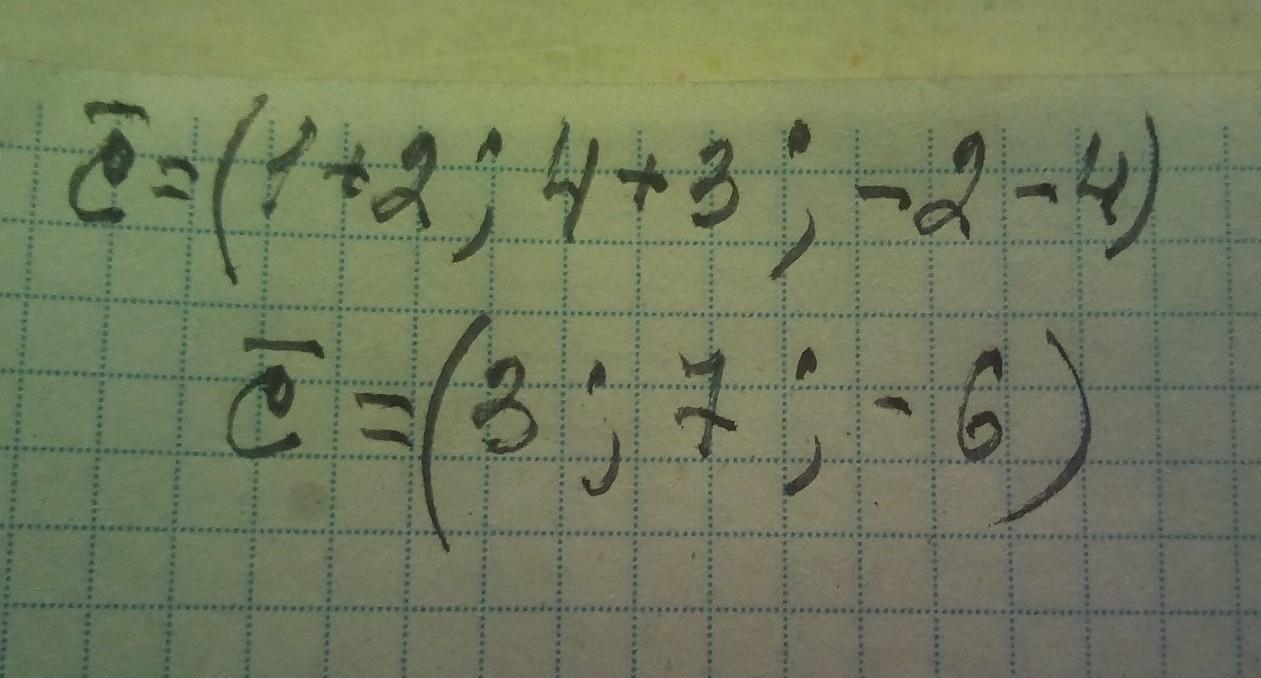 c̅ = (1+2; 4+3; -2-4)
c̅ = (3; 7; -6)